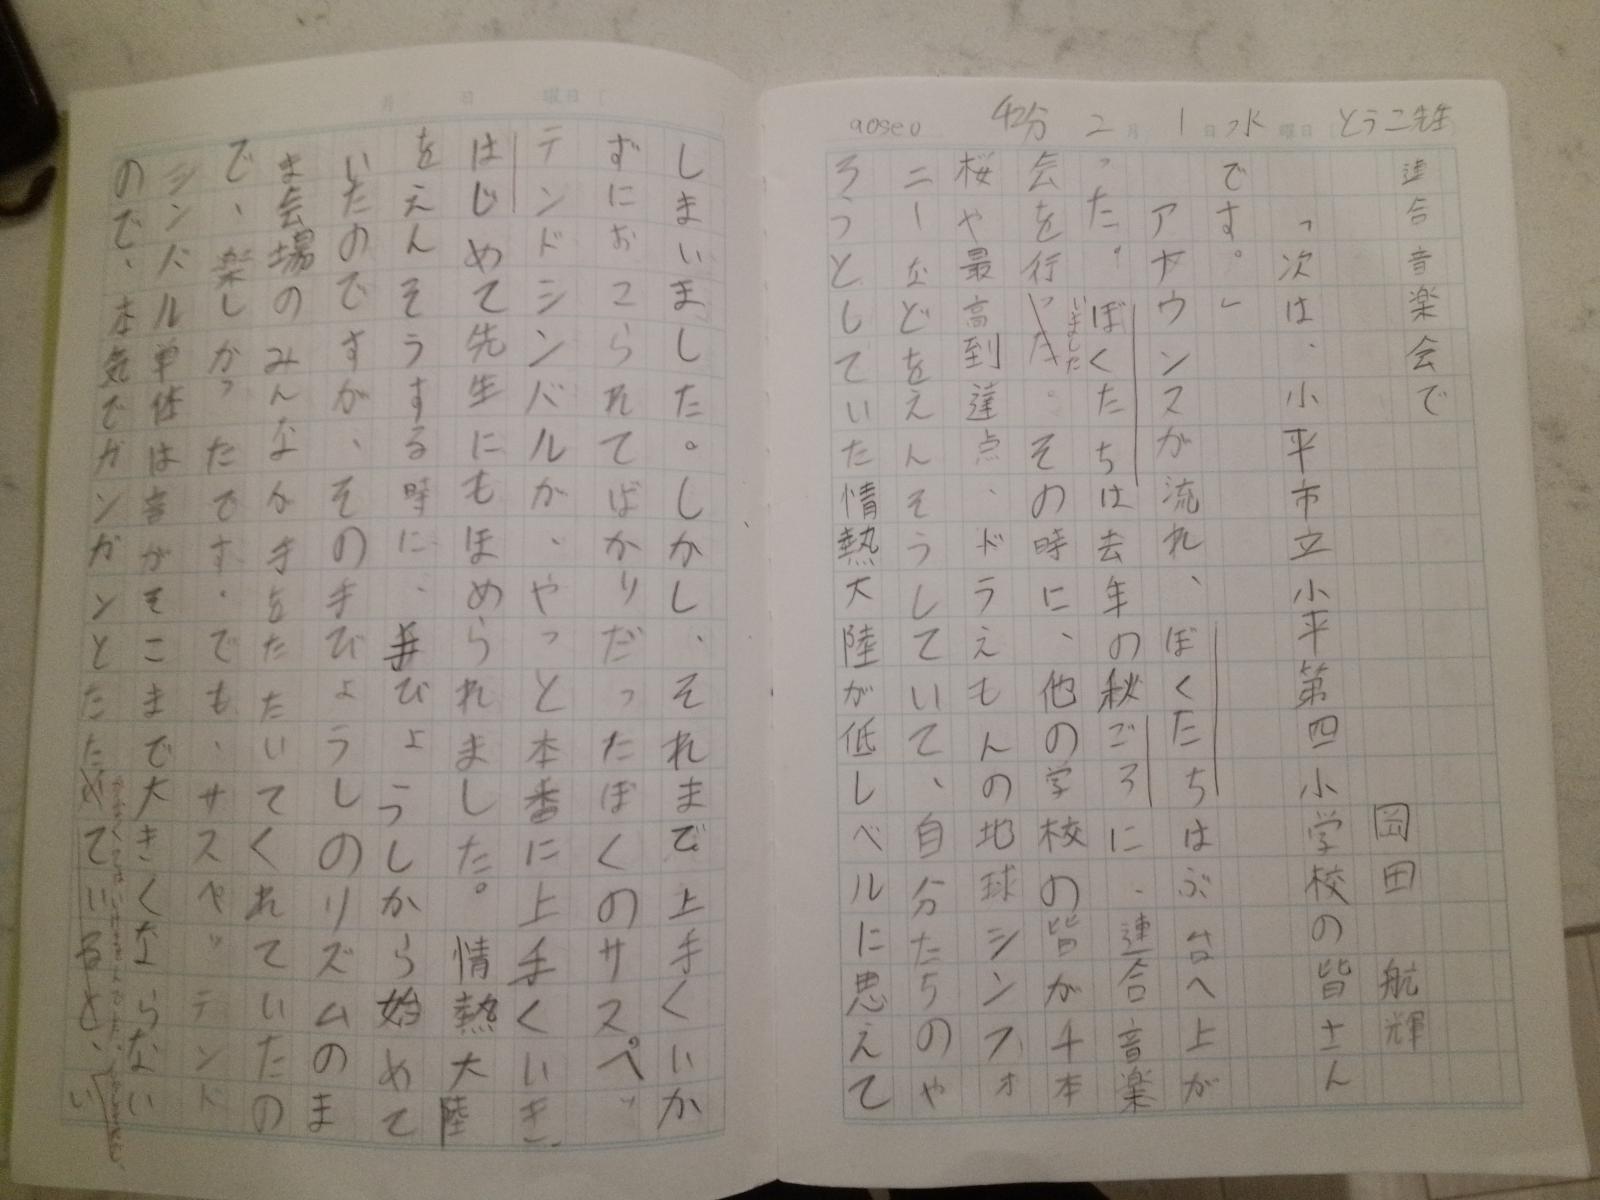 42分 2月1日水曜日 とうこ先生
連合音楽会で
岡田 航輝
「次は、小平市立小平第四小学校の皆さん
です。」
アナウンスが流れ、ぼくたちはぶ台へ上が
った。ぼくたちは去年の秋ごろに、連合音楽
会を行った。その時に、他の学校の皆が千本
いました
桜や最高到達点、ドラえもんの地球シンフォ
ニーなどをえんそうしていて、自分たちのや
ろうとしていた情熱大陸が低レベルに思えて
月 日 曜日
しまいました。しかし、それまで上手くいか
ずにおこられてばかりだったぼくのサスペッ
テンドシンバルが、やっと本番に上手くいき、
はじめて先生にもほめられました。情熱大陸
をえんそうする時に、手びょうしから始めて
いたのですが、その手びょうしのリズムのま
ま会場のみんなが手をたたいてくれていたの
で、楽しかったです。でも、サスペッテンド
シンバル単体は音がそこまで大きくならない
ので、本気でガンガンとたためていると、い